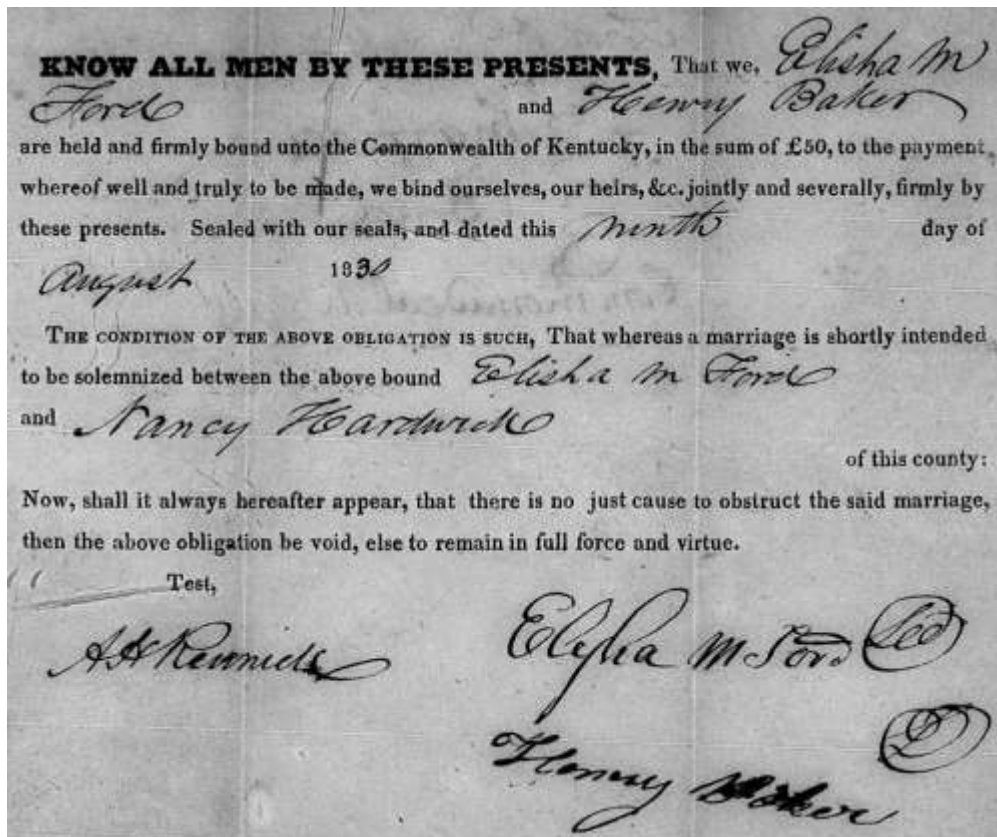 KNOW ALL MEN BY THESE PRESENTS, That we, Elisha M
Ford and Henry Baker
are held and firmly bound unto the Commonwealth of Kentucky, in the sum of £50, to the payment
whereof well and truly to be made, we bind ourselves, our heirs, &c. jointly and severally, firmly by
these presents. Sealed with our seals, and dated this ninth day of
August 1830
THE CONDITION OF THE ABOVE OBLIGATION IS SUCH, That whereas a marriage is shortly intended
to be solemnized between the above bound Elisha M Ford
and Nancy Hardwick
of this county:
Now, shall it always hereafter appear, that there is no just cause to obstruct the said marriage,
then the above obligation be void, else to remain in full force and virtue.
Test,
Elisha M Ford
Henry Baker